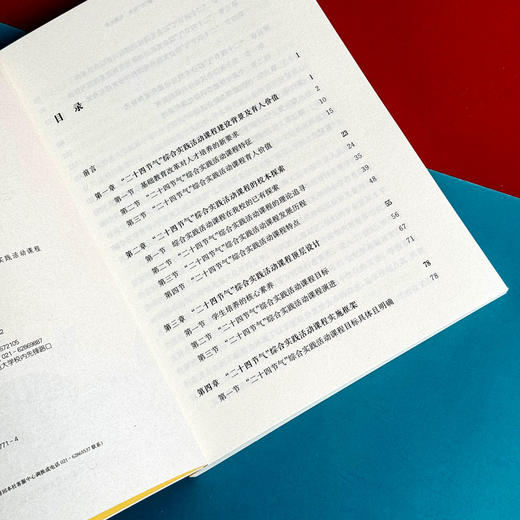 实践活动课程
2
672105
021-62869887
范大学校内先锋路口
771-4
请回本社客服中心调换或电话 021-62865537 联系）
目 录
前言 1
第一章 “二十四节气”综合实践活动课程建设背景及育人价值 1
第一节 基础教育改革对人才培养的新要求 2
第二节 “二十四节气”综合实践活动课程特征 10
第三节 “二十四节气”综合实践活动课程育人价值 15
第二章 “二十四节气”综合实践活动课程的校本探索 23
第一节 综合实践活动课程在我校的已有探索 24
第二节 “二十四节气”综合实践活动课程的理论追寻 35
第三节 “二十四节气”综合实践活动课程发展历程 39
第四节 “二十四节气”综合实践活动课程特点 48
第三章 “二十四节气”综合实践活动课程顶层设计 55
第一节 学生培养的核心素养 56
第二节 “二十四节气”综合实践活动课程目标 67
第三节 “二十四节气”综合实践活动课程演进 71
第四章 “二十四节气”综合实践活动课程实施框架 78
第一节 “二十四节气”综合实践活动课程目标具体且明确 78